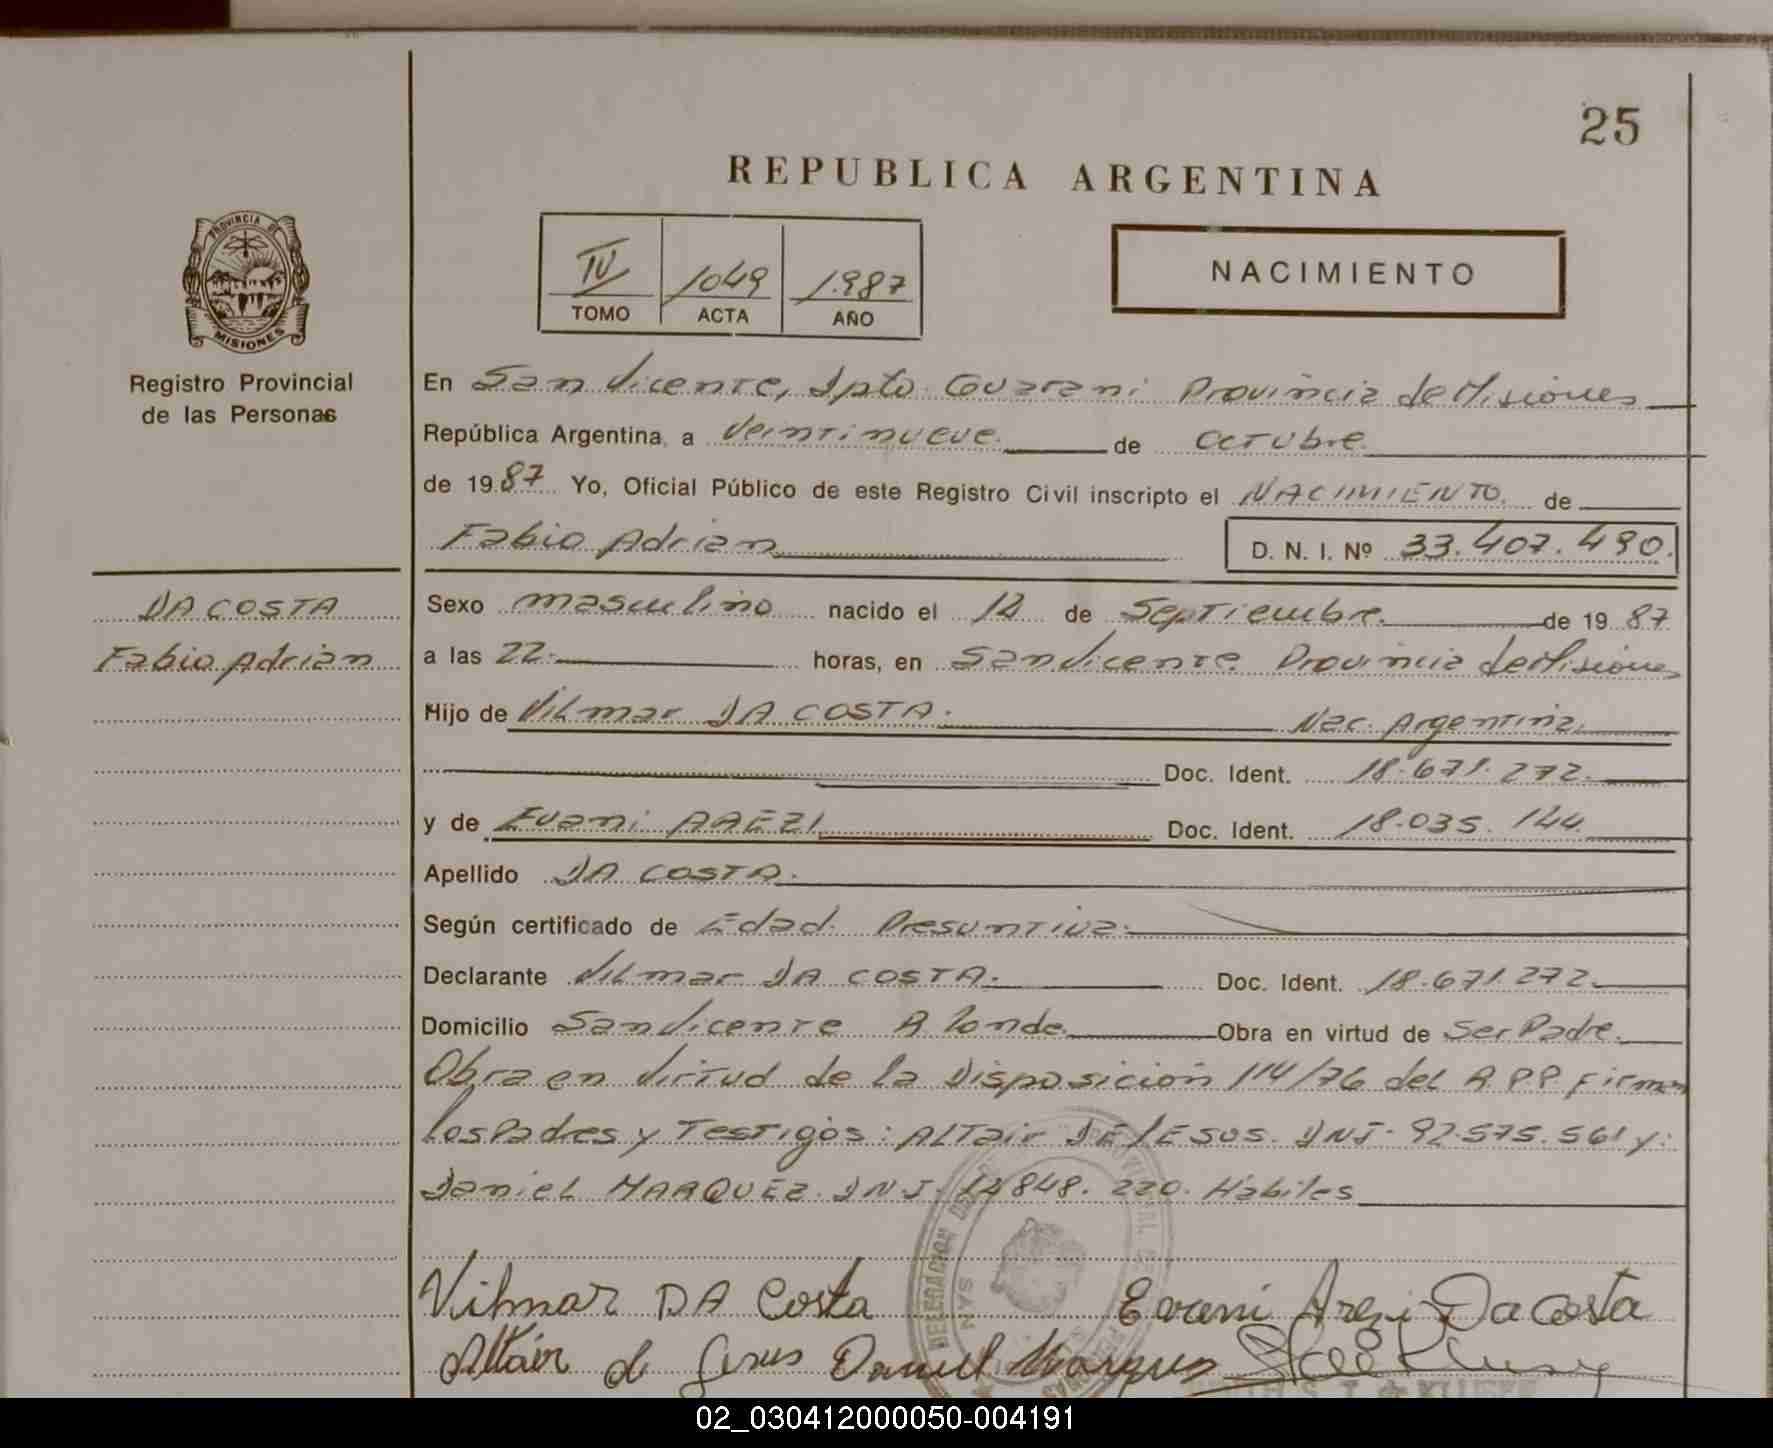 25
REPUBLICA ARGENTINA
PROVINCIA DE
MISIONES
Registro Provincial
de las Personas
IV 1049 1.987
TOMO ACTA AÑO
NACIMIENTO
En San Vicente, Dpto. Guarani Provincia de Misiones
República Argentina, a Veintinueve de Octubre
de 1987 Yo, Oficial Público de este Registro Civil inscripto el NACIMIENTO de
Fabio Adrian D. N. I. Nº 33.407.490.
DA COSTA
Fabio Adrian
Sexo masculino nacido el 12 de Septiembre de 1987
a las 22 horas, en San Vicente Provincia de Misiones
Hijo de Vilmar DA COSTA. Nac. Argentina.
Doc. Ident. 18.671.272.
y de Evani Doc. Ident. 18.035.144
Apellido DA COSTA.
Según certificado de Edad Presuntiva.
Declarante Vilmar DA COSTA. Doc. Ident. 18.671.272.
Domicilio San Vicente Obra en virtud de Ser Padre.
Obra en virtud de la Disposición 114/76 del A.P.P. Firman
los Padres y Testigos: ALTair DE JESUS. DNI. 92.575.561 y:
Daniel MARQUEZ. DNI. 848.220. Habiles
Vilmar DA Costa Evani Arezi Da Costa
Altair de Jesus Daniel Marques
DELEGACION
02_030412000050-004191